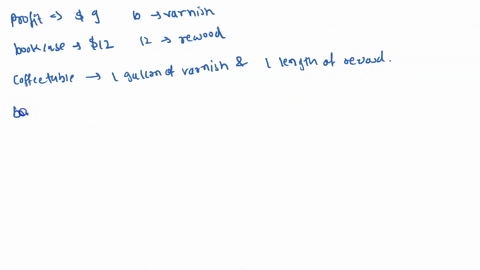 profit => $ 9 10 → varnish
bookcase → $12 12 → rewood
Coffeetable → 1 gallon of varnish & 1 length of rewood.
bo